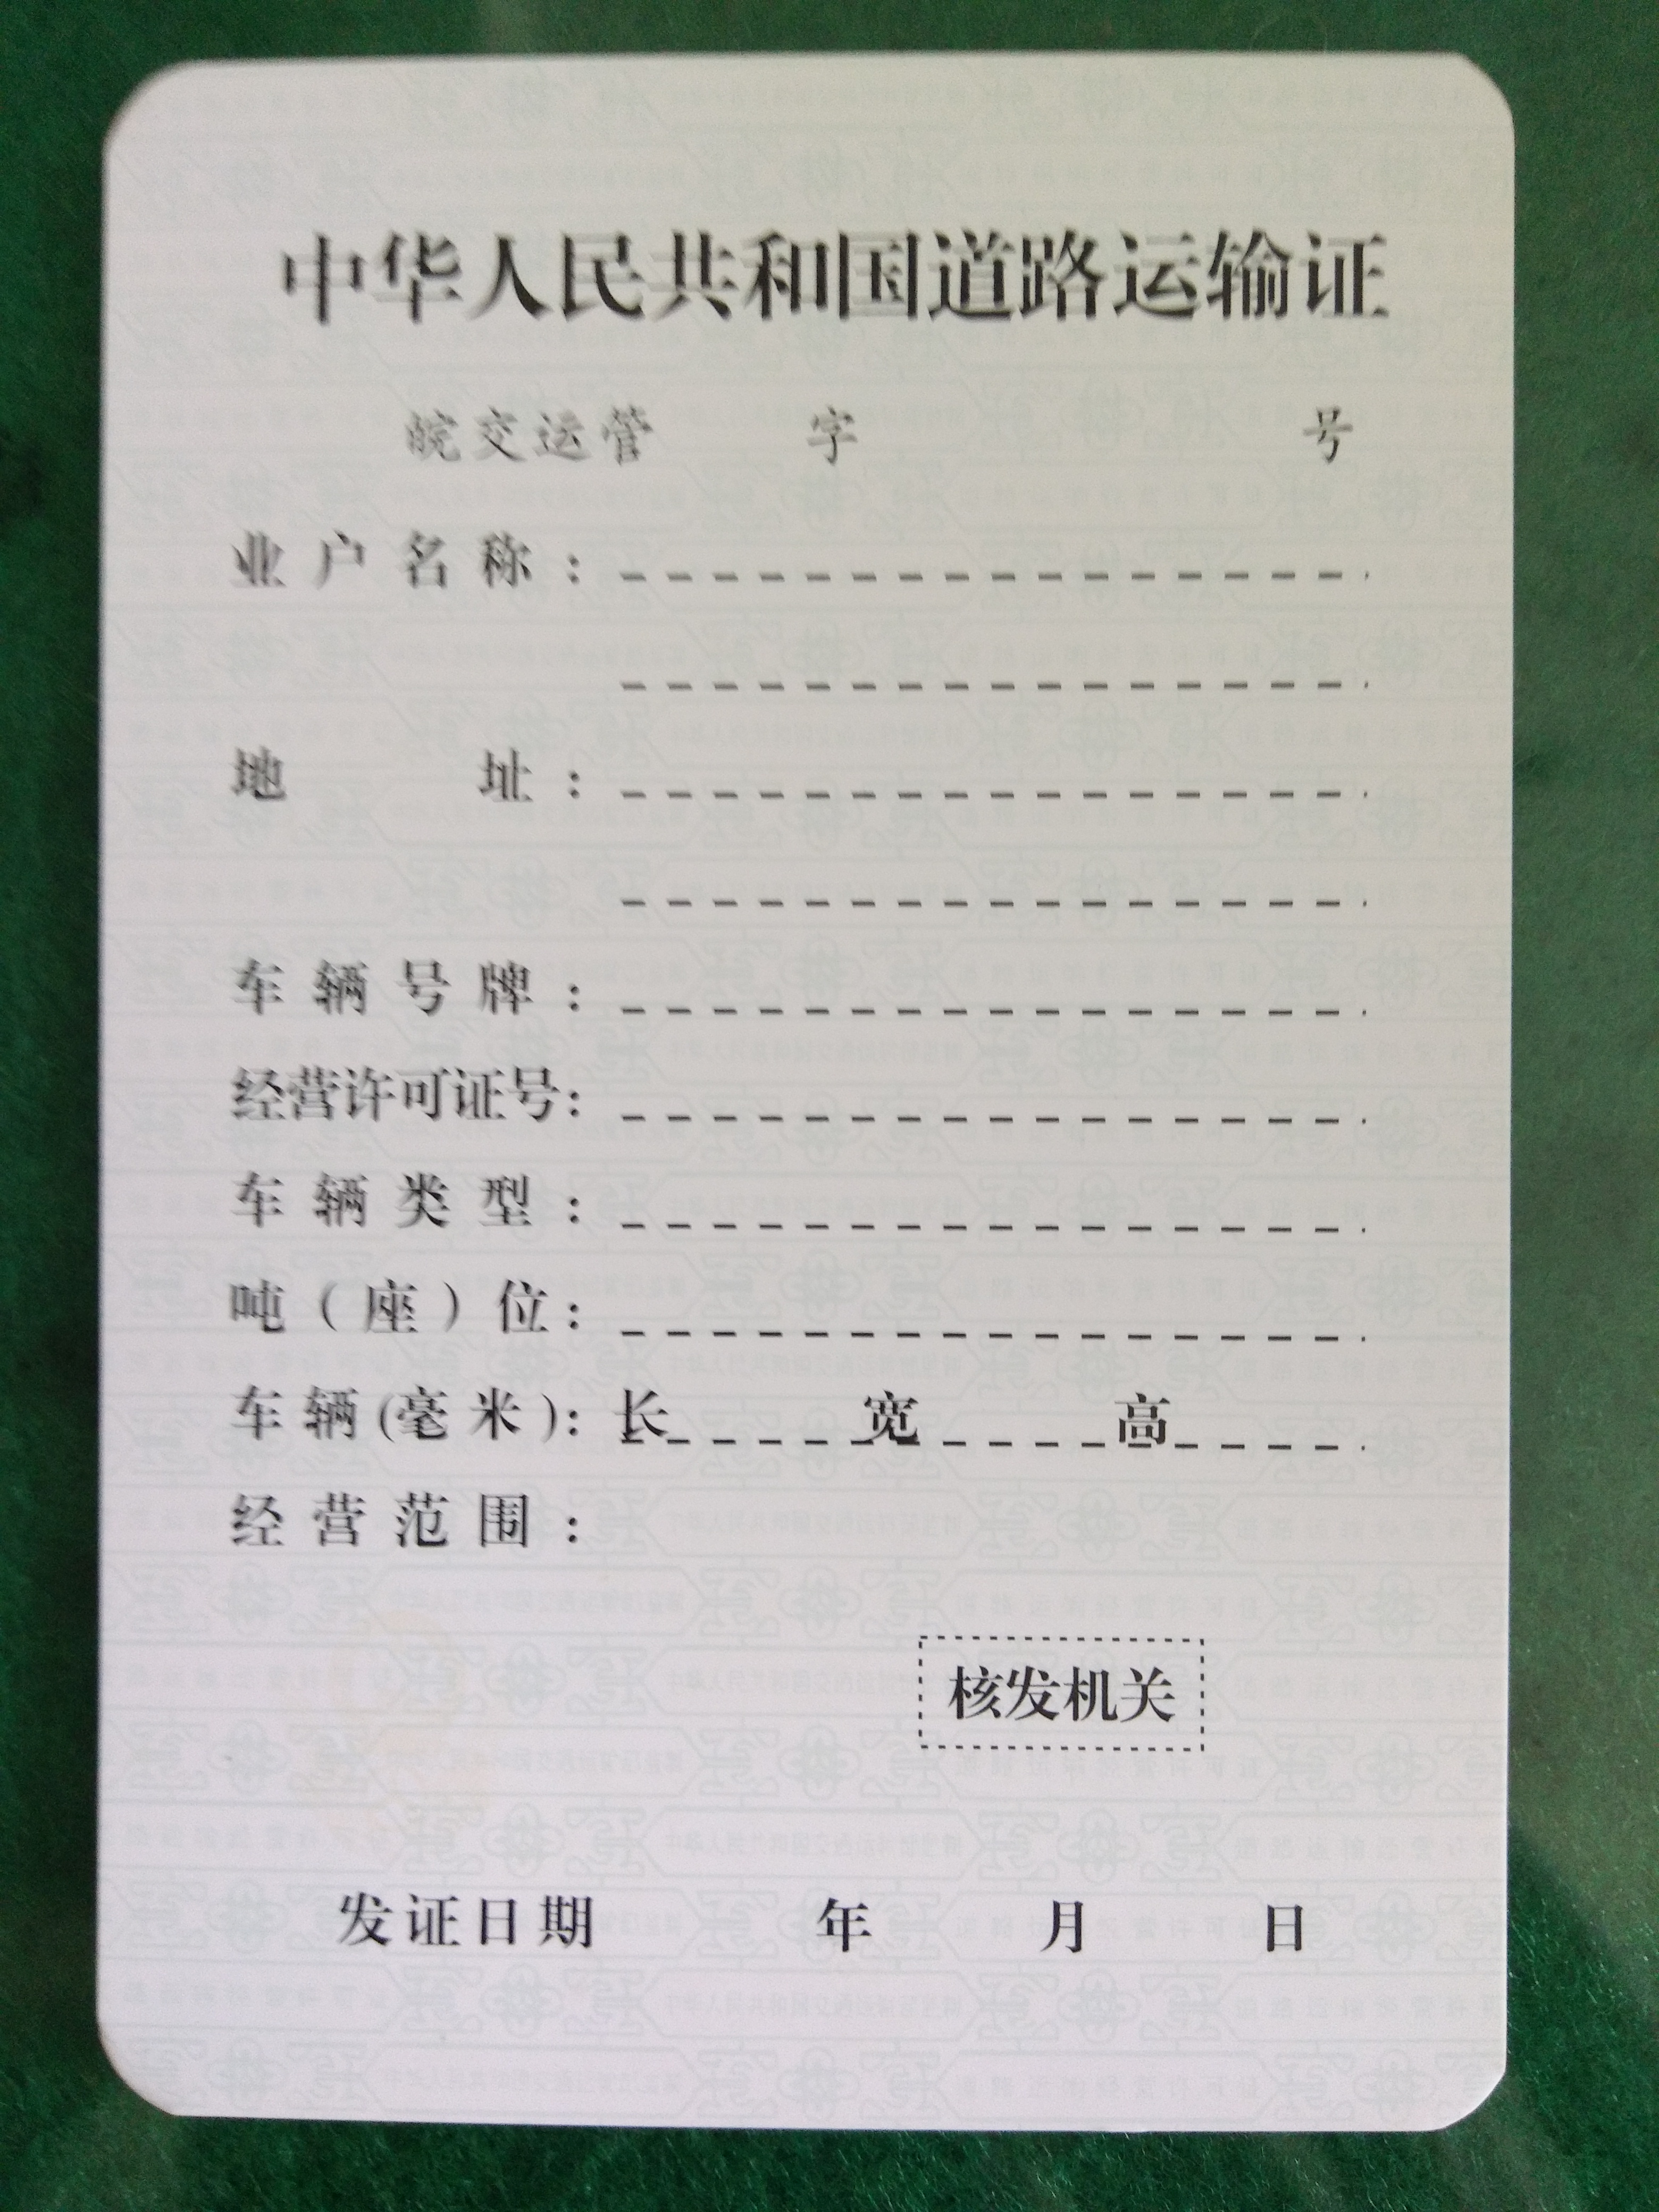 中华人民共和国道路运输证
皖交运管 字 号
业户名称：
地 址：
车辆号牌：
经营许可证号：
车辆类型：
吨（座）位：
车辆(毫米)：长 宽 高
经营范围：
核发机关
发证日期 年 月 日